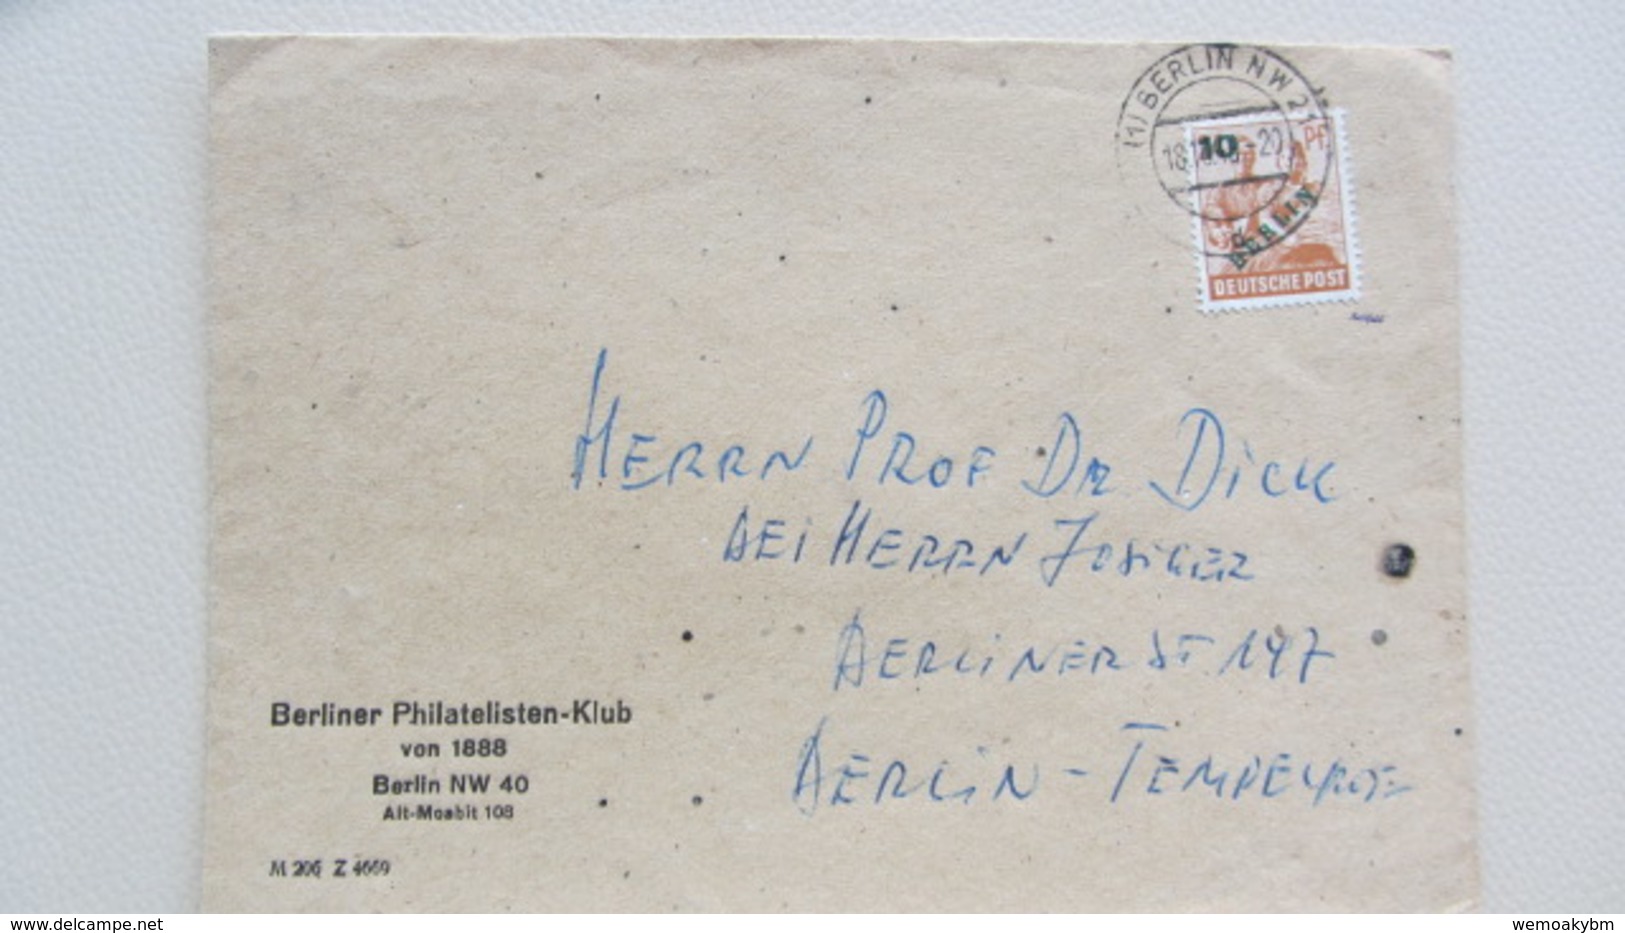 (1) BERLIN NW 21
10 Pf
BERLIN
DEUTSCHE POST
HERRN PROF DR DICK
BEI HERRN
BERLINER ST 147
BERLIN - TEMPELHOF
Berliner Philatelisten-Klub
von 1888
Berlin NW 40
Alt-Moabit 108
M 206 Z 4669
delcampe.net
wemoakybm